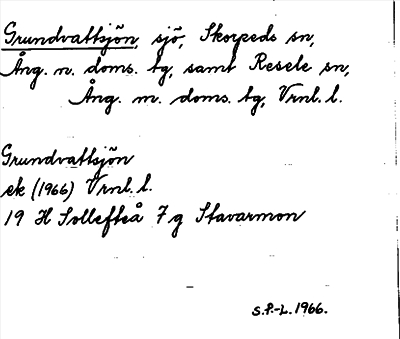 Grundvattsjön, sjö, Skorpeds sn,
Ång. n. doms. tg, samt Resele sn,
Ång. m. doms. tg, Vrnl. l.
Grundvattsjön
ek (1966) Vrnl. l.
19 H Sollefteå 7 g Stavarmon
S.P.-L. 1966.